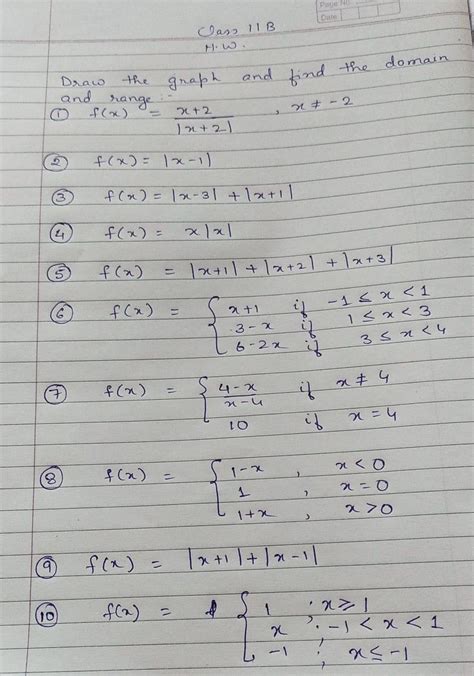 Page No.
Date
Class 11 B
H.W.
Draw the graph and find the domain
and range :-
① f(x) = x+2 / |x+2| , x ≠ -2
② f(x) = |x-1|
③ f(x) = |x-3| + |x+1|
④ f(x) = x|x|
⑤ f(x) = |x+1| + |x+2| + |x+3|
⑥ f(x) = { x+1 if -1 ≤ x < 1
3-x if 1 ≤ x < 3
6-2x if 3 ≤ x < 4
⑦ f(x) = { 4-x / x-4 if x ≠ 4
10 if x = 4
⑧ f(x) = { 1-x , x < 0
1 , x = 0
1+x , x > 0
⑨ f(x) = |x+1| + |x-1|
⑩ f(x) = { 1 ; x ≥ 1
x ; -1 < x < 1
-1 ; x ≤ -1